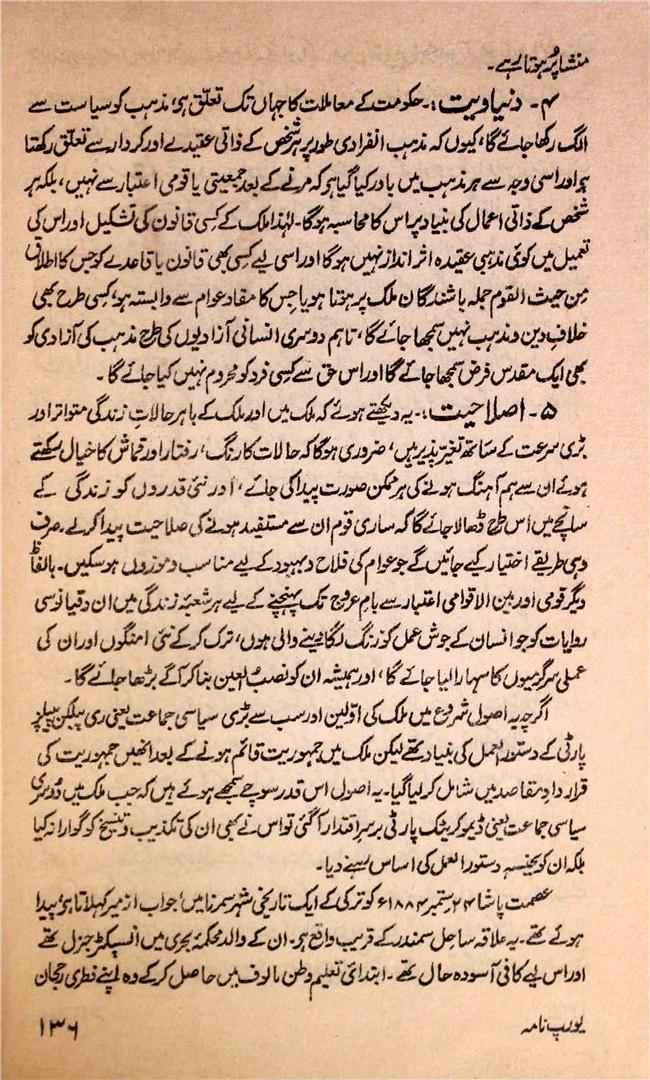 منشا پر ہوتا رہے۔
۴۔ دنیاویت:۔ حکومت کے معاملات کا جہاں تک تعلق ہے، مذہب کو سیاست سے
الگ رکھا جائے گا، کیوں کہ مذہب انفرادی طور پر ہر شخص کے ذاتی عقیدے اور کردار سے تعلق رکھتا
ہے اور اسی وجہ سے ہر مذہب میں باور کیا گیا ہے کہ مرنے کے بعد جمعیتی یا قومی اعتبار سے نہیں، بلکہ ہر
شخص کے ذاتی اعمال کی بنیاد پر اس کا محاسبہ ہوگا۔ لہٰذا ملک کے کسی قانون کی تشکیل اور اس کی
تعمیل میں کوئی مذہبی عقیدہ اثر انداز نہیں ہوگا اور اسی لیے کسی بھی قانون یا قاعدے کو جس کا اطلاق
مِن حیث القوم جملہ باشندگان ملک پر ہوتا ہو یا جس کا مفاد عوام سے وابستہ ہو، کسی طرح بھی
خلافِ دین و مذہب نہیں سمجھا جائے گا، تاہم دوسری انسانی آزادیوں کی طرح مذہب کی آزادی کو
بھی ایک مقدس فرض سمجھا جائے گا اور اس حق سے کسی فرد کو محروم نہیں کیا جائے گا۔
۵۔ اصلاحیت:۔ یہ دیکھتے ہوئے کہ ملک میں اور ملک کے باہر حالاتِ زندگی متواتر اور
بڑی سرعت کے ساتھ تغیر پذیر ہیں، ضروری ہوگا کہ حالات کا رنگ، رفتار اور قماش کا خیال رکھتے
ہوئے ان سے ہم آہنگ ہونے کی ہر ممکن صورت پیدا کی جائے، اور نئی قدروں کو زندگی کے
سانچے میں اس طرح ڈھالا جائے گا کہ ساری قوم ان سے مستفید ہونے کی صلاحیت پیدا کرلے۔ صرف
وہی طریقے اختیار کیے جائیں گے جو عوام کی فلاح و بہبود کے لیے مناسب و موزوں ہوسکیں۔ بالفاظ
دیگر قومی اور بین الاقوامی اعتبار سے بامِ عروج تک پہنچنے کے لیے ہر شعبۂ زندگی میں ان دقیانوسی
روایات کو جو انسان کے جوشِ عمل کو زنگ لگا دینے والی ہوں، ترک کرکے نئی امنگوں اور ان کی
عملی سرگرمیوں کا سہارا لیا جائے گا، اور ہمیشہ ان کو نصبُ العین بنا کر آگے بڑھا جائے گا۔
اگرچہ یہ اصول شروع میں ملک کی اوّلین اور سب سے بڑی سیاسی جماعت یعنی ری پبلکن پیپلز
پارٹی کے دستور العمل کی بنیاد تھے لیکن ملک میں جمہوریت قائم ہونے کے بعد انھیں جمہوریت کی
قرار داد مقاصد میں شامل کرلیا گیا۔ یہ اصول اس قدر سوچے سمجھے ہوئے ہیں کہ جب ملک میں دوسری
سیاسی جماعت یعنی ڈیموکریٹک پارٹی برسرِ اقتدار آگئی تو اس نے بھی ان کی تکذیب و تنسیخ کو گوارا نہ کیا
بلکہ ان کو بجنسہٖ دستور العمل کی اساس رہنے دیا۔
عصمت پاشا ۲۴ ستمبر ۱۸۸۴ء کو ترکی کے ایک تاریخی شہر سمرنا میں، جو اب ازمیر کہلاتا ہے، پیدا
ہوئے تھے۔ یہ علاقہ ساحل سمندر کے قریب واقع ہے۔ ان کے والد محکمۂ بحری میں انسپکٹر جنرل تھے
اور اس لیے کافی آسودہ حال تھے۔ ابتدائی تعلیم وطن مالوف میں حاصل کرکے وہ اپنے فطری رجحان
یورپ نامہ
۱۳۶